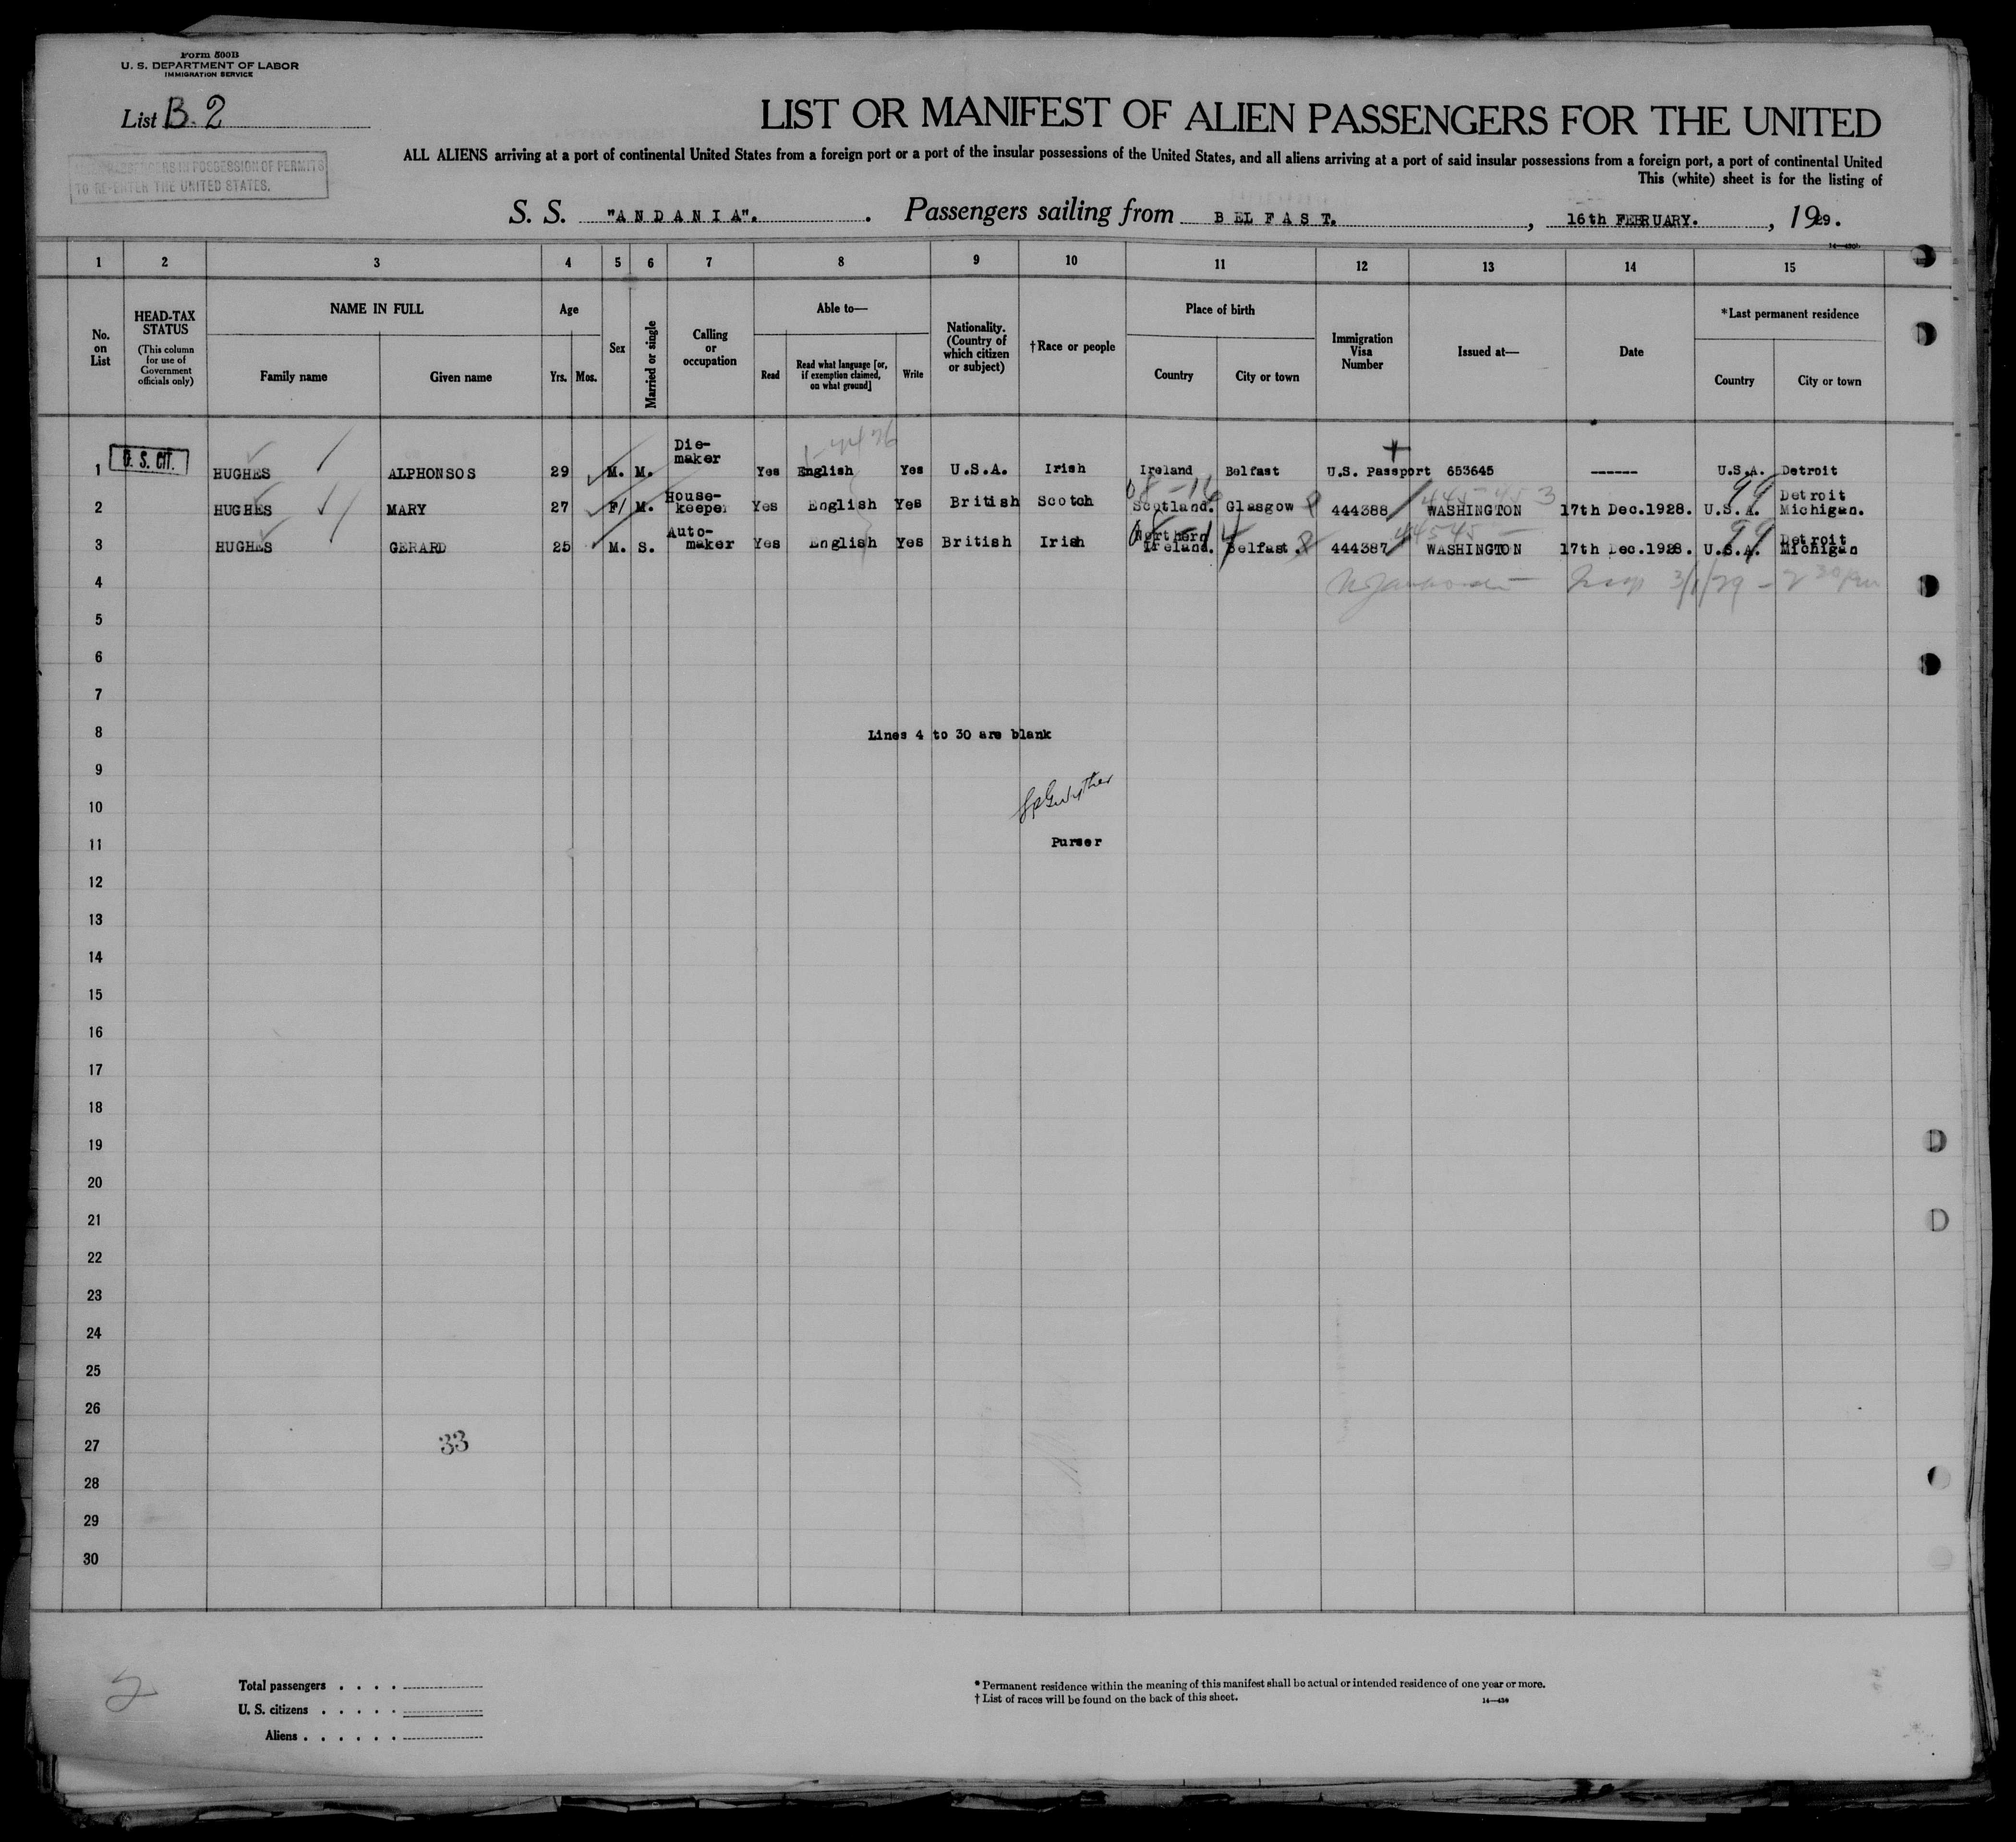 Form 500B
U. S. DEPARTMENT OF LABOR
IMMIGRATION SERVICE
List B. 2
LIST OR MANIFEST OF ALIEN PASSENGERS FOR THE UNITED
ALL ALIENS arriving at a port of continental United States from a foreign port or a port of the insular possessions of the United States, and all aliens arriving at a port of said insular possessions from a foreign port, a port of continental United
This (white) sheet is for the listing of
PASSENGERS IN POSSESSION OF PERMITS
TO RE-ENTER THE UNITED STATES.
S. S. "ANDANIA". Passengers sailing from BELFAST. , 16th FEBRUARY. , 1929.
1 2 3 4 5 6 7 8 9 10 11 12 13 14 15
No. on List
HEAD-TAX STATUS
(This column for use of Government officials only)
NAME IN FULL
Family name
Given name
Age
Yrs. Mos.
Sex
Married or single
Calling or occupation
Able to—
Read
Read what language [or, if exemption claimed, on what ground]
Write
Nationality. (Country of which citizen or subject)
†Race or people
Place of birth
Country
City or town
Immigration Visa Number
Issued at—
Date
*Last permanent residence
Country
City or town
1 U. S. CIT. HUGHES ALPHONSOS 29 M. M. Die-maker Yes English Yes U.S.A. Irish Ireland Belfast U.S. Passport 653645 ------ U.S.A. Detroit
2 HUGHES MARY 27 F/ M. House-keeper Yes English Yes British Scotch Scotland. Glasgow 444388 WASHINGTON 17th Dec.1928. U.S.A. Detroit Michigan.
3 HUGHES GERARD 25 M. S. Auto-maker Yes English Yes British Irish Northern Ireland. Belfast. 444387 WASHINGTON 17th Dec.1928. U.S.A. Detroit Michigan
4
5
6
7
8 Lines 4 to 30 are blank
9
10
11 Purser
12
13
14
15
16
17
18
19
20
21
22
23
24
25
26
27 33
28
29
30
2
Total passengers . . . .
U. S. citizens . . . . .
Aliens . . . . . .
* Permanent residence within the meaning of this manifest shall be actual or intended residence of one year or more.
† List of races will be found on the back of this sheet.
14—430